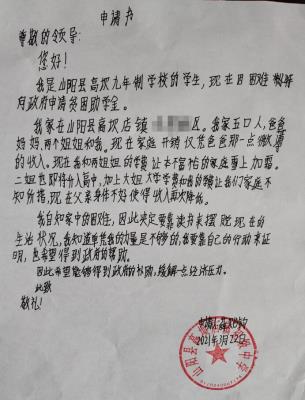 申请书
尊敬的领导:
您好!
我是山阳县高坎九年制学校的学生,现在因困难特
向政府申请贫困助学金。
我家在山阳县高坝店镇 区。我家五口人,爸爸
妈妈,两个姐姐和我。现在家庭开销仅凭爸爸那一点微薄
的收入。现在我和两姐姐的学费让本不富裕的家庭重上加霜。
二姐也即将升入高中,加上大姐大学学费和我的学费让我们家庭不
知所措,现在父亲身体不好使得收入再次降低。
我自知家中的困难,因此决定要靠读书来摆脱现在的
生活状况,我知道单凭我的力量是不够的,我要靠自己的行动来证
明,也希望得到政府的帮助。
因此希望能够得到政府的补助,缓解一点经济压力。
此致
敬礼!
申请
2021年3月22日
山阳县高 中学